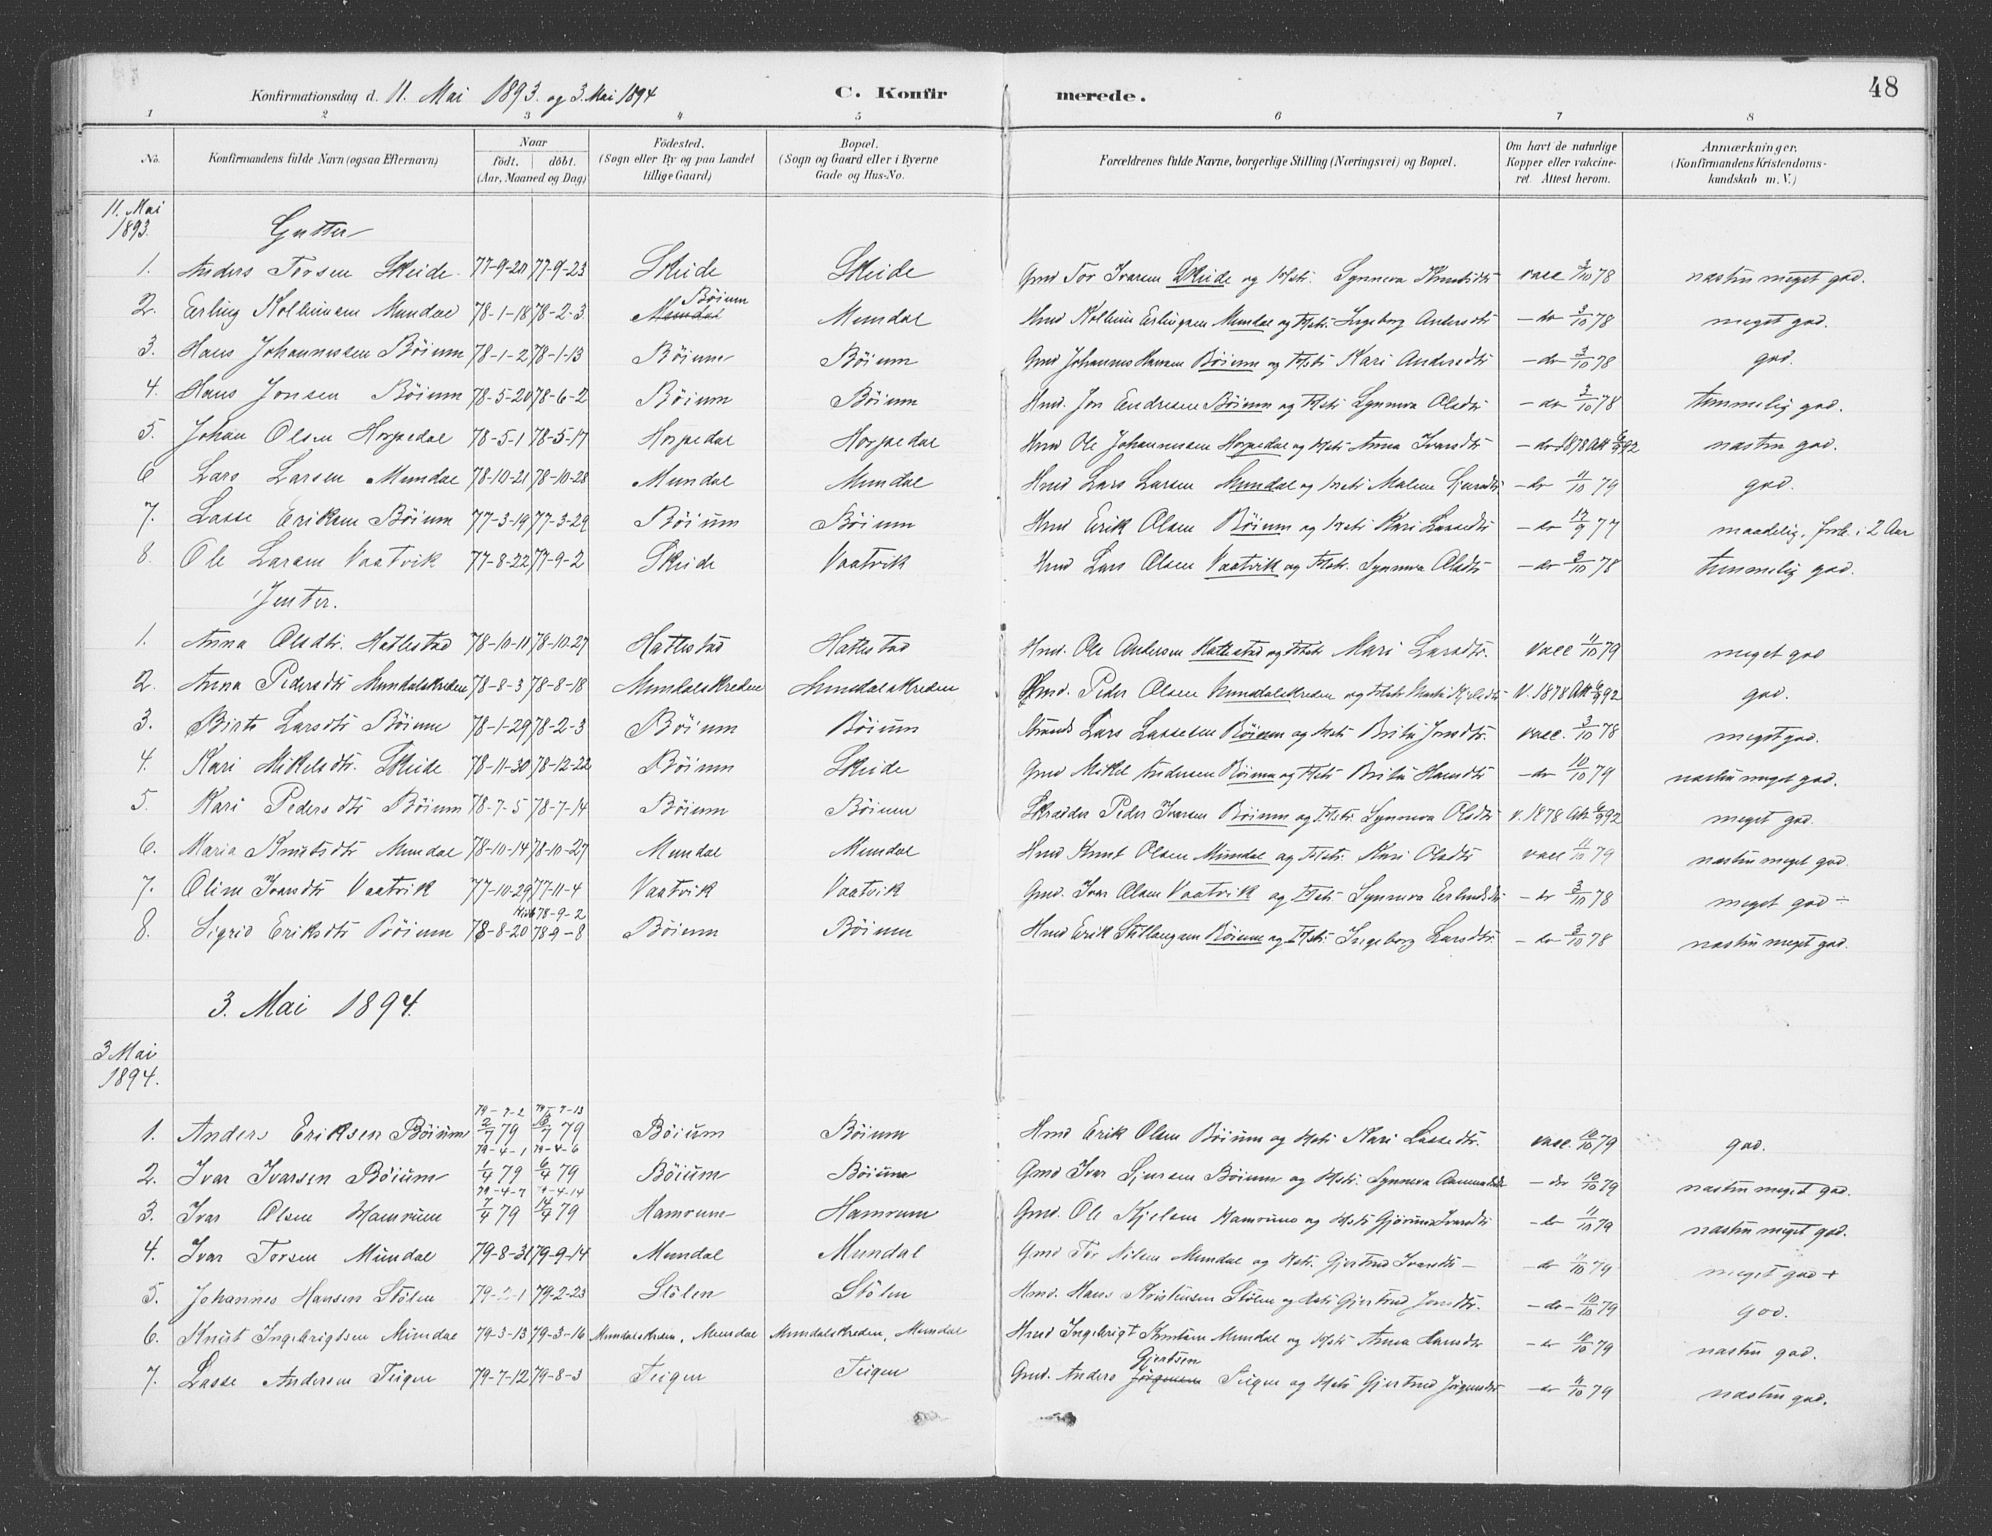 48
Konfirmationsdag d. 11. Mai 1893. og 3. Mai 1894 C. Konfirmerede.
1 2 3 4 5 6 7 8
No. Konfirmandens fulde Navn (ogsaa Efternavn) Naar født. døbt. (Aar, Maaned og Dag) Fødested. (Sogn eller By og paa Landet tillige Gaard) Bopæl. (Sogn og Gaard eller i Byerne Gade og Hus-No. Forældrenes fulde Navne, borgerlige Stilling (Næringsvei) og Bopæl. Om havt de naturlige Kopper eller vakcineret. Attest herom. Anmærkninger, (Konfirmandens Kristendomskundskab m. V.)
11. Mai 1893.
Gutter
1. Anders Torsen Skeide 77-9-20 77-9-23 Skeide Skeide Gmd Tor Ivarsen Skeide og Kstr. Synneva Knutsdtr vacc 3/10 78 næsten meget god.
2. Erling Kolbeinsen Mundal 78-1-18 78-2-3 Mundal Bøium Mundal Hmd Kolbein Erlingsen Mundal og Kstr. Ingeborg Andersdtr – do 3/10 78 meget god.
3. Hans Johannessen Bøium 78-1-2 78-1-13 Bøium Bøium Gmd Johannes Hansen Bøium og Kstr Kari Andersdtr – do 3/10 78 god.
4. Hans Jonsen Bøium 78-5-20 78-6-2 Bøium Bøium Hmd. Jon Endresen Bøium og Kstr Synneva Olsdtr – do 3/10 78 temmelig god.
5. Johan Olsen Horpedal 78-5-1 78-5-17 Horpedal Horpedal Hmd Ole Johannessen Horpedal og Kstr Anna Ivarsdtr – do 1878 Att 92 næsten god.
6 Lars Larsen Mundal 78-10-21 78-10-28 Mundal Mundal Hmd Lars Larsen Mundal og Kstr Malene – do 11/10 79 god.
7. Lasse Eriksen Bøium 77-3-19 77-3-29 Bøium Bøium Hmd Erik Olsen Bøium og Kstr Kari Lassedtr – do 17/9 77 maadelig, forb. i 2 Aar
8. Ole Larsen Vaatvik 77-8-22 77-9-2 Skeide Vaatvik Hmd Lars Olsen Vaatvik og Kstr. Synneva Olsdtr – do 3/10 78 temmelig god.
Jenter.
1. Anna Olsdtr. Hatlestad 78-10-11 78-10-27 Hatlestad Hatlestad Hmd. Ole Andersen Hatlestad og Kstr Mari Larsdtr. vacc 11/10 79 meget god
2. Anna Pedersdtr Mundalskreden 78-8-3 78-8-18 Mundalskreden Mundalskreden Peder Olsen Mundalskreden og Kstr V. 1878 Att 92 god.
3. Birte Larsdtr Bøium 78-1-29 78-2-3 Bøium Bøium Lars Lassesen Bøium og Kstr Brita Jonsdtr. vacc. 3/10 78 meget god.
4. Kari Mikelsdtr. Skeide 78-11-30 78-12-22 Bøium Skeide Gmd Mikel Andersen Bøium og Kstr Brita Hansdtr – do 10/10 79 næsten meget god.
5. Kari Pedersdtr Bøium 78-7-5 78-7-14 Bøium Bøium Skrædder Peder Ivarsen Bøium og Kstr. Synneva Olsdtr v. 1878 Att 92 meget god.
6. Maria Knutsdtr Mundal 78-10-14 78-10-27 Mundal Mundal Hmd Knut Olsen Mundal og Kstr. Kari Olsdtr vacc 11/10 79 næsten meget god.
7. Oline Ivarsdtr Vaatvik 77-10-29 77-11-4 Vaatvik Vaatvik Gmd. Ivar Olsen Vaatvik og Kstr Synneva Erlendsdtr – do 3/10 78 meget god ÷
8. Sigrid Eriksdtr Bøium 78-8-20 78-9-2 78 9-8 Bøium Bøium Hmd Erik Bøium og Kstr. Ingeborg Larsdtr. – do 3/10 78 næsten meget god.
3. Mai 1894.
3 Mai 1894.
1. Anders Eriksen Bøium 79-7-2 2/7 79 79-7-13 13/7 79 Bøium Bøium Hmd Erik Olsen Bøium og Kstr Kari Lassedtr. vacc. 10/10 79 god.
2. Ivar Ivarsen Bøium 79-4-1 1/4 79 79-4-6 6/4 79 Bøium Bøium Gmd Ivar Sjursen Bøium og Kstr. Synneva – do 10/10 79 næsten meget god.
3. Ivar Olsen Hamrum 79-4-7 7/4 79 79-4-14 14/4 79 Hamrum Hamrum Gmd. Ole Kjelsen Hamrum og Kstr Gjøruna Ivarsdtr – do 11/10 79 næsten meget god.
4. Ivar Torsen Mundal 79-8-31 79-9-14 Mundal Mundal Gmd Tor Nilsen Mundal og Kstr. Gjertrud Ivarsdtr – – do 11/10 79 meget god +
5. Johannes Hansen Stølen 79-2-1 79-2-23 Stølen Stølen Hmd. Hans Kristensen Stølen og Kstr Gjertrud Jonsdtr. – do – 10/10 79 god.
6. Knut Ingebrigtsen Mundal 79-3-13 79-3-16 Mundalskreden, Mundal Mundalskreden, Mundal Hmd Ingebrigt Knutsen Mundal og Kstr Anna Hansdtr – do 10/10 79 næsten god.
7. Lasse Andersen Teigen 79-7-12 79-8-3 Teigen Teigen Gmd. Anders Jørgensen Gjertsen Teigen og Kstr Gjertrud Jørgensdtr – do 11/10 79 næsten god.